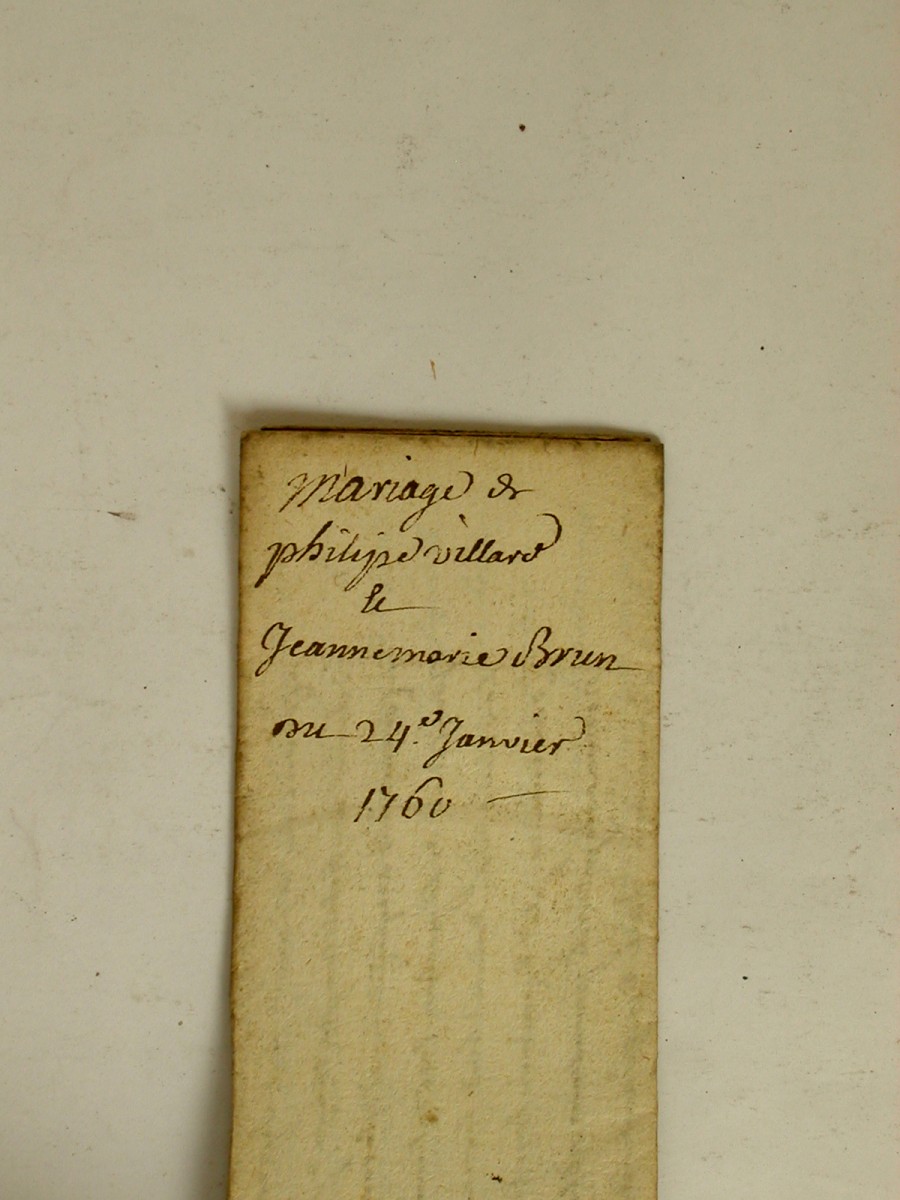 Mariage de
philipe villard
&
Jeanne marie Brun
du 24.e Janvier
1760